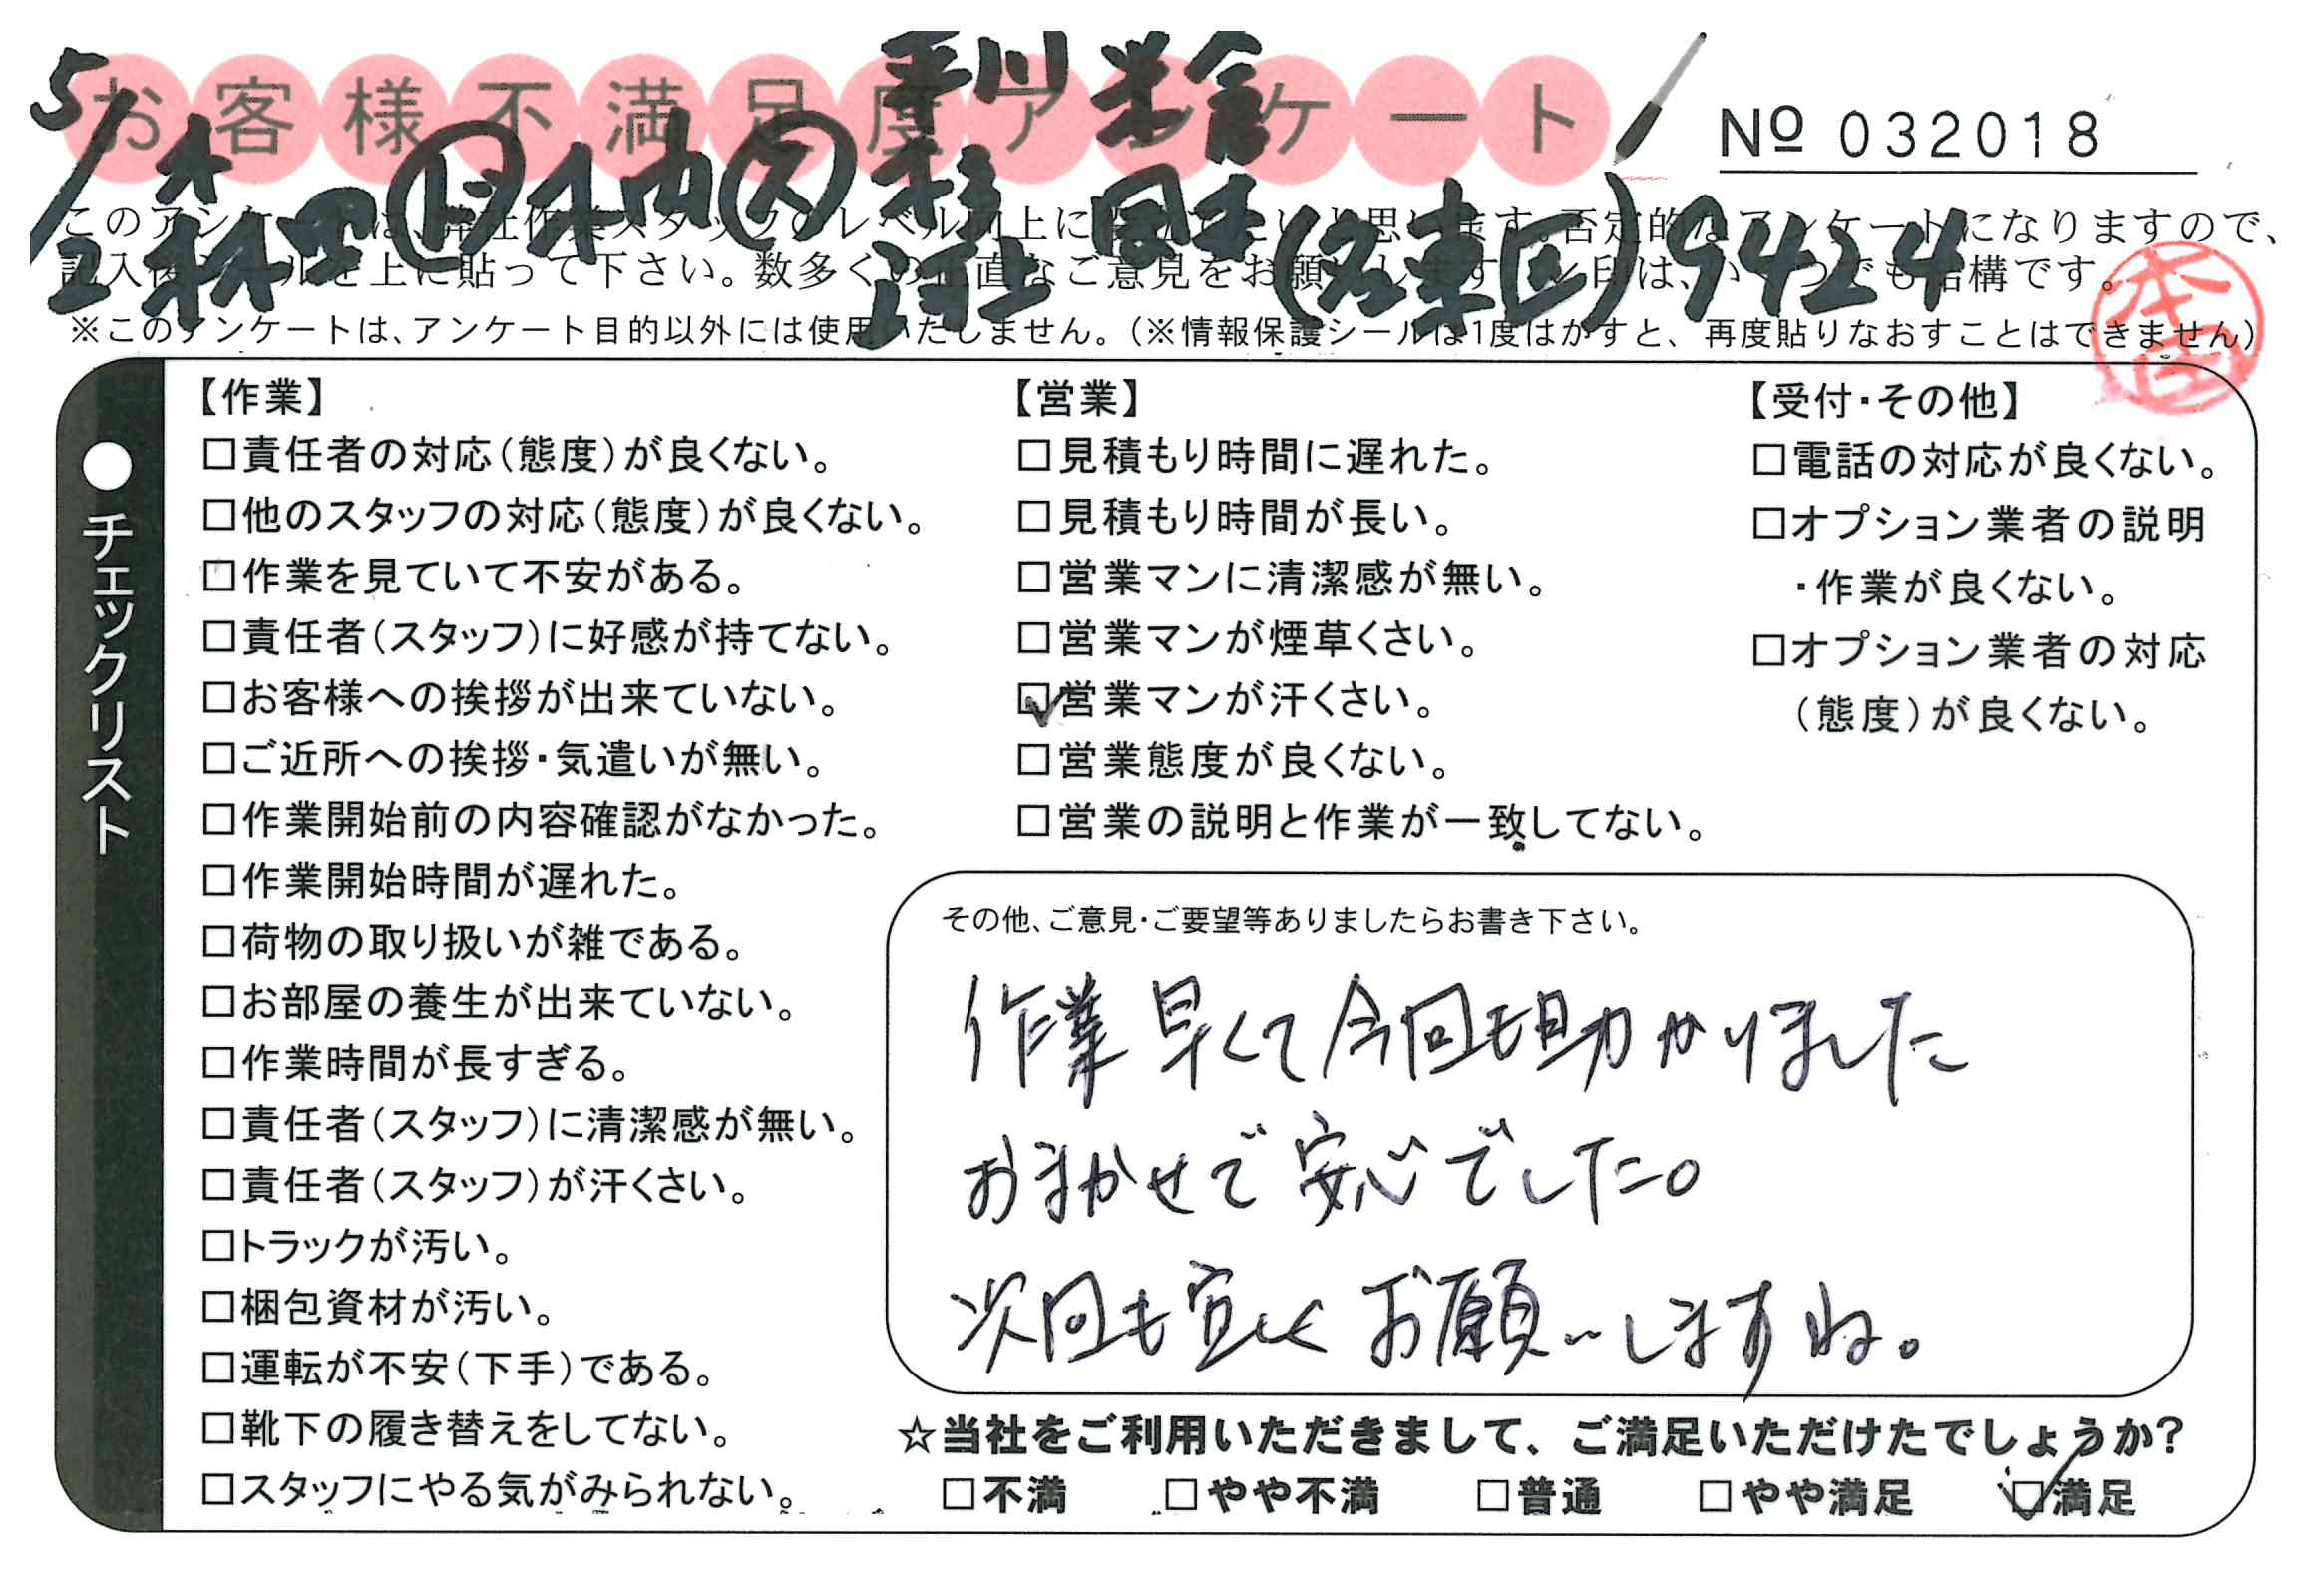 お客様不満足度アンケート
№ 032018
5/2
(名東区) 9424
このアンケートは、弊社作業スタッフのレベル向上に
思います。否定的なアンケートになりますので、
記入後シールを上に貼って下さい。数多くの正直なご意見をお願いします
結構です。
※このアンケートは、アンケート目的以外には使用いたしません。(※情報保護シールは1度はがすと、再度貼りなおすことはできません)
●チェックリスト
【作業】
□責任者の対応(態度)が良くない。
□他のスタッフの対応(態度)が良くない。
□作業を見ていて不安がある。
□責任者(スタッフ)に好感が持てない。
□お客様への挨拶が出来ていない。
□ご近所への挨拶・気遣いが無い。
□作業開始前の内容確認がなかった。
□作業開始時間が遅れた。
□荷物の取り扱いが雑である。
□お部屋の養生が出来ていない。
□作業時間が長すぎる。
□責任者(スタッフ)に清潔感が無い。
□責任者(スタッフ)が汗くさい。
□トラックが汚い。
□梱包資材が汚い。
□運転が不安(下手)である。
□靴下の履き替えをしてない。
□スタッフにやる気がみられない。
【営業】
□見積もり時間に遅れた。
□見積もり時間が長い。
□営業マンに清潔感が無い。
□営業マンが煙草くさい。
☑営業マンが汗くさい。
□営業態度が良くない。
□営業の説明と作業が一致してない。
【受付・その他】
□電話の対応が良くない。
□オプション業者の説明
・作業が良くない。
□オプション業者の対応
(態度)が良くない。
その他、ご意見・ご要望等ありましたらお書き下さい。
作業早くて今回も助かりました
おまかせで安心でした。
次回も宜しくお願いしますね。
☆当社をご利用いただきまして、ご満足いただけたでしょうか?
□不満 □やや不満 □普通 □やや満足 ☑満足